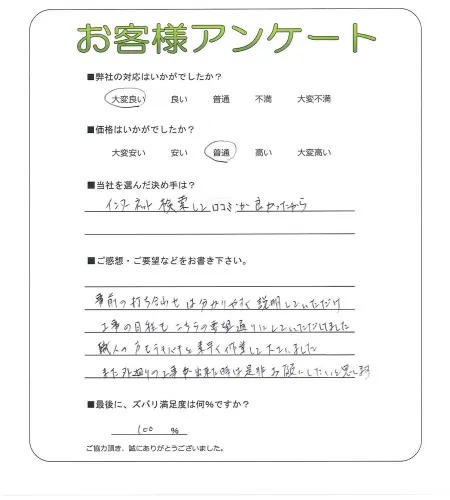 お客様アンケート
■弊社の対応はいかがでしたか？
大変良い 良い 普通 不満 大変不満
■価格はいかがでしたか？
大変安い 安い 普通 高い 大変高い
■当社を選んだ決め手は？
インターネット検索して口コミが良かったから
■ご感想・ご要望などをお書き下さい。
事前の打ち合わせは分かりやすく説明していただけ
工事の日程もこちらの要望通りにしていただけました
職人の方もテキパキと素早く作業して下さいました
また外廻りの工事が出来た時は是非お願いしたいと思います
■最後に、ズバリ満足度は何%ですか？
100 %
ご協力頂き、誠にありがとうございました。